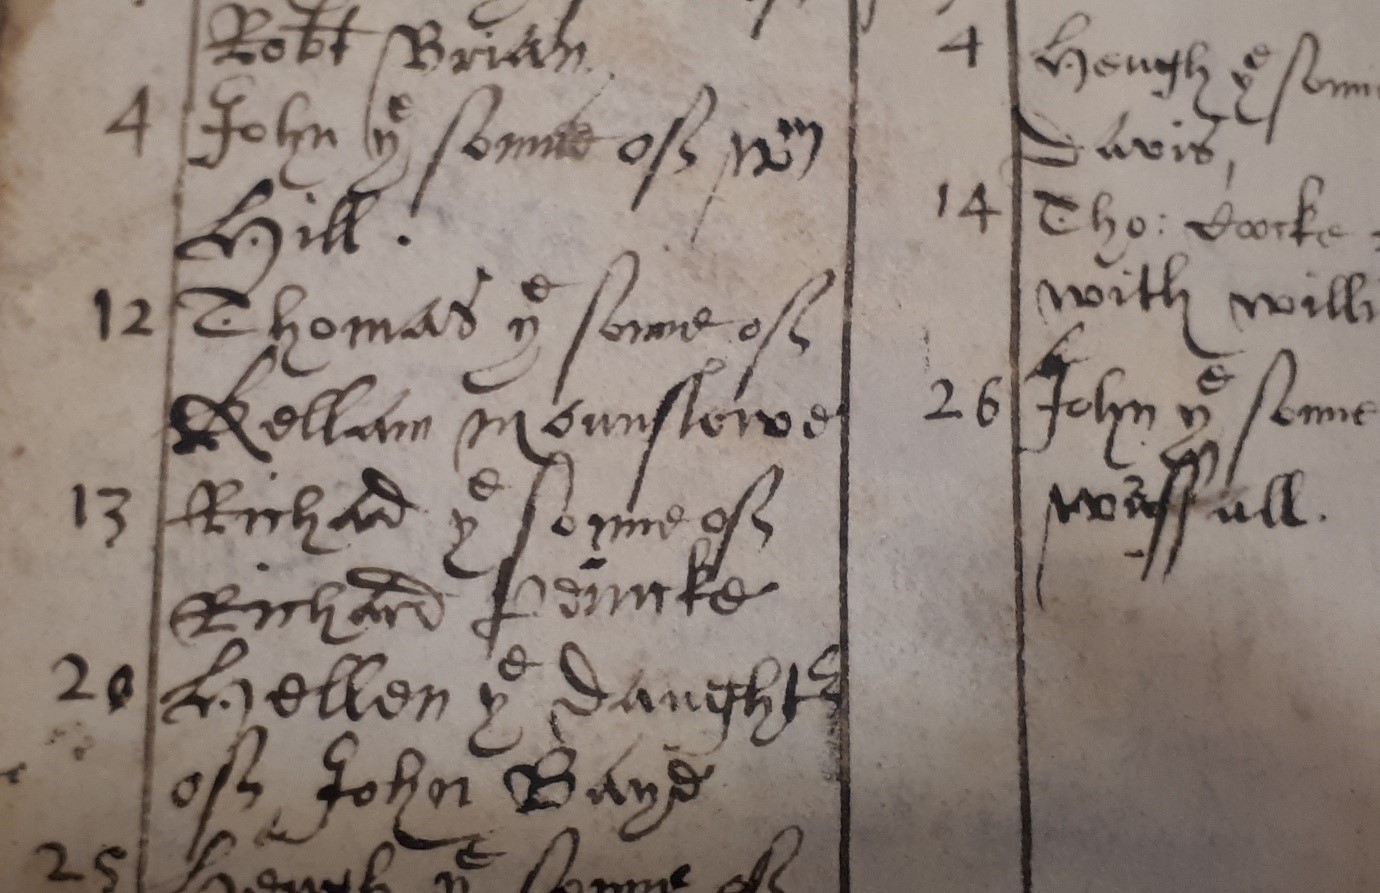 Robt Brian
4 John ye sonne of Wm
Hill.
12 Thomas ye sonne of
Kellam Mounslowe
13 Richard ye sonne of
Richard
20 Hellen ye Daughtr
of John Bayd
25 Heugh ye sonne of
4 Heugh ye sonn
Davis,
14 Tho: Coocke
with willi
26 John ye sonne